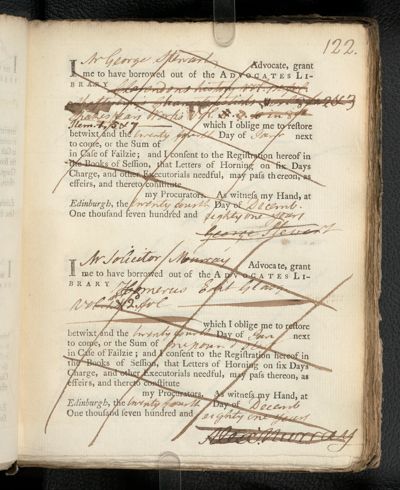 122.
I Mr George Stewart Advocate, grant
me to have borrowed out of the ADVOCATES LI-
BRARY Clarendons history
Shakespears Works
which I oblige me to restore
betwixt and the twenty fourth Day of Jany next
to come, or the Sum of
in Case of Failzie; and I consent to the Registration hereof in
the Books of Session, that Letters of Horning on six Days
Charge, and other Executorials needful, may pass thereon, as
effeirs, and thereto constitute
my Procurators. As witness my Hand, at
Edinburgh, the twenty fourth Day of Decemb.
One thousand seven hundred and eighty one years
George Stewart
I Mr Solicitor Murray Advocate, grant
me to have borrowed out of the ADVOCATES LI-
BRARY Homerus Edit
which I oblige me to restore
betwixt and the twenty fourth Day of Jany next
to come, or the Sum of
in Case of Failzie; and I consent to the Registration hereof in
the Books of Session, that Letters of Horning on six Days
Charge, and other Executorials needful, may pass thereon, as
effeirs, and thereto constitute
my Procurators. As witness my Hand, at
Edinburgh, the twenty fourth Day of Decemb
One thousand seven hundred and eighty one years
Murray